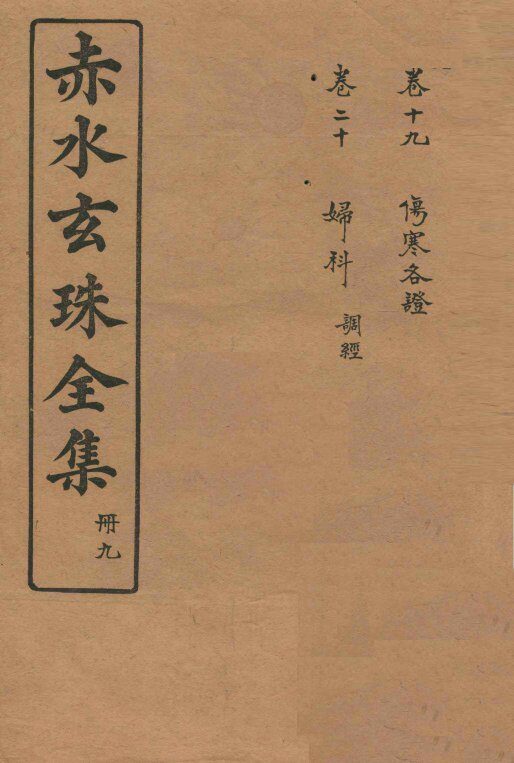 卷十九 傷寒各證
卷二十 婦科 調經
赤水玄珠全集 冊九